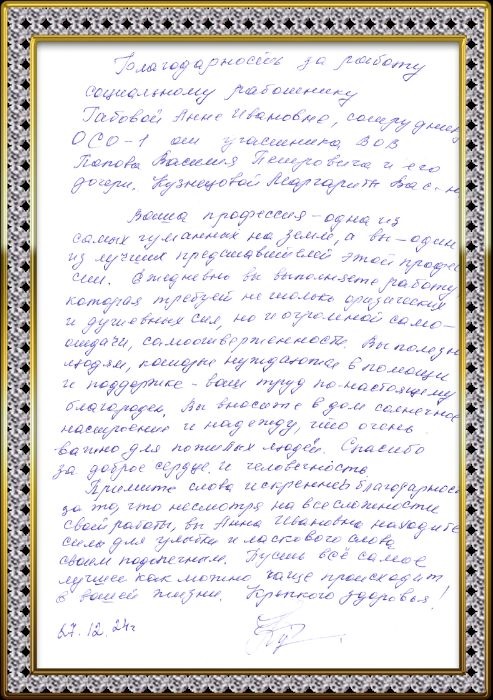 Благодарность за работу
социальному работнику
Габовой Анне Ивановне, сотруднику
ОСО-1 от участника ВОВ
Попова Василия Петровича и его
дочери. Кузнецовой Маргариты Вас-н
Ваша профессия - одна из
самых гуманных на земле, а вы - один
из лучших представителей этой профес
сии. Ежедневно вы выполняете работу,
которая требует не только физических
и душевных сил, но и огромной само-
отдачи, самоотверженности. Вы полезны
людям, которые нуждаются в помощи
и поддержке - ваш труд по-настоящему
благороден, Вы вносите в дом солнечное
настроение и надежду, что очень
важно для пожилых людей. Спасибо
за доброе сердце и человечность
Примите слова искренней благодарнос
за то, что несмотря на все сложности
своей работы, вы Анна Ивановна находите
силы для улыбки и ласкового слова
своим подопечным. Пусть всё самое
лучшее как можно чаще происходит
в вашей жизни. Крепкого здоровья!
27.12.24г